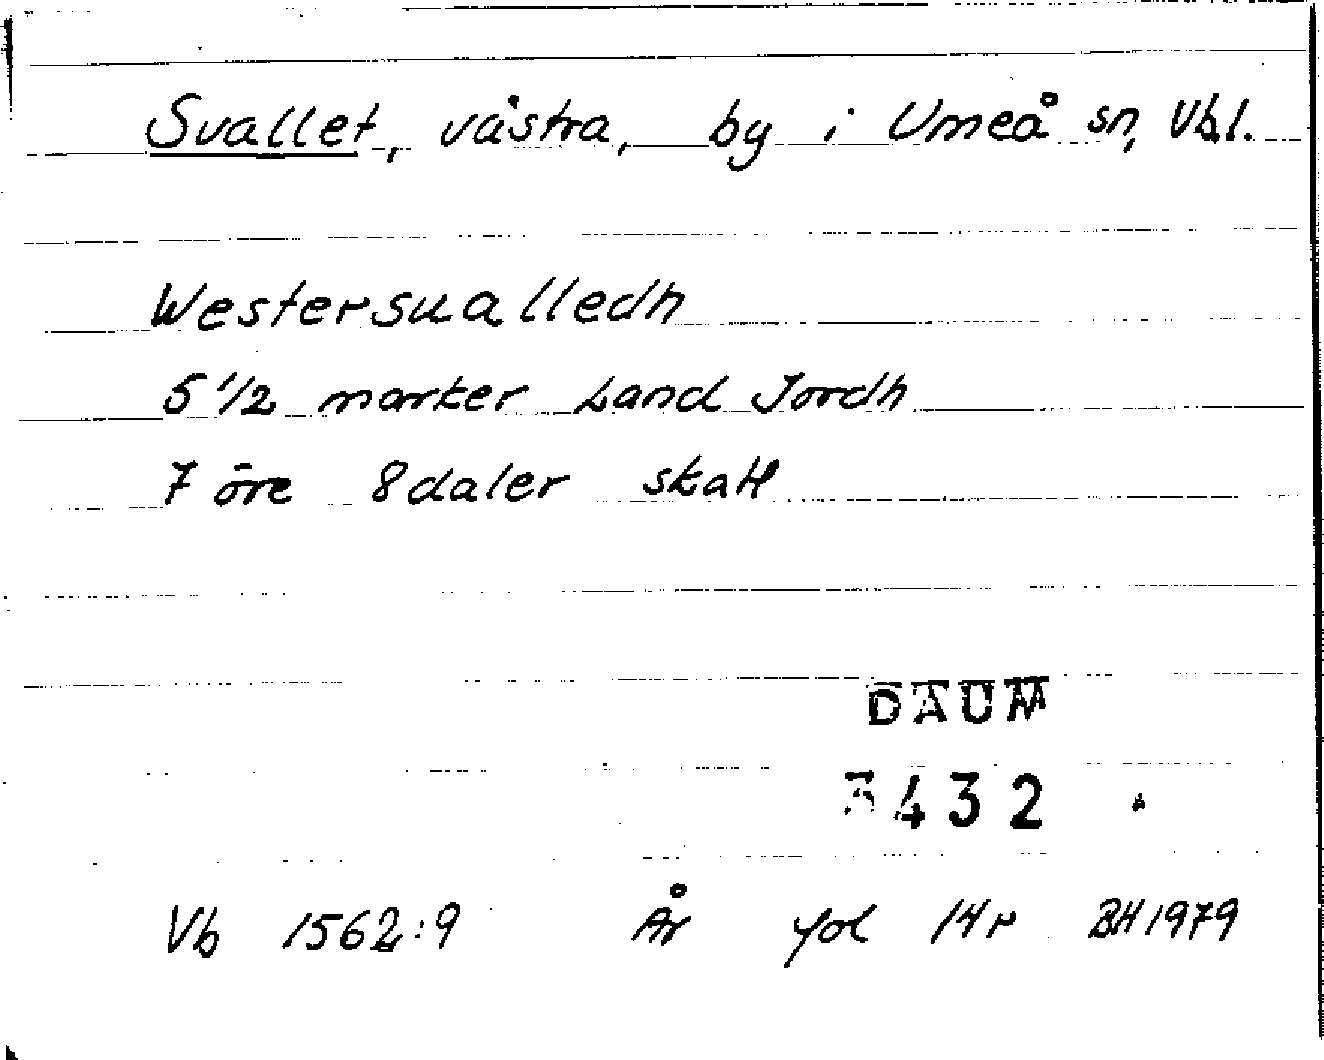 Svallet, västra, by i Umeå sn, Vbl.
Westersualledh
5 1/2 marker Land Jordh
7 öre 8 daler skatt
DAUM
3432
Vb 1562:9 År fol 14r BH 1979